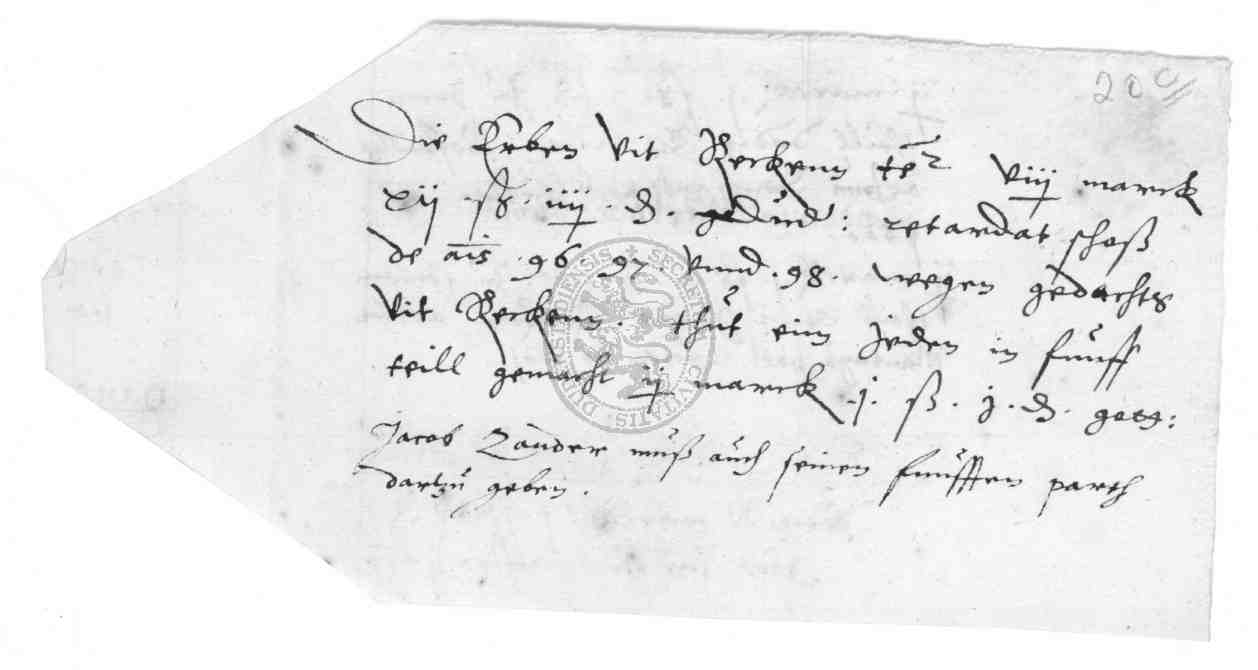 20 c
Die Erben Vit Reckenn ter viiij marck
xij ß. iiij. d. gedúrd: retardat schoß
de ais 96 97. vnnd. 98. wegen gedachts
Vit Reckenn. thůt ein jeden in fúnff
teill gemacht ij marck .j. ß. j. d. getg:
Jacob Zander můß aúch seinen fúnfften parth
dartzů geben.
SECRETVM CIVITATIS DIENSIS